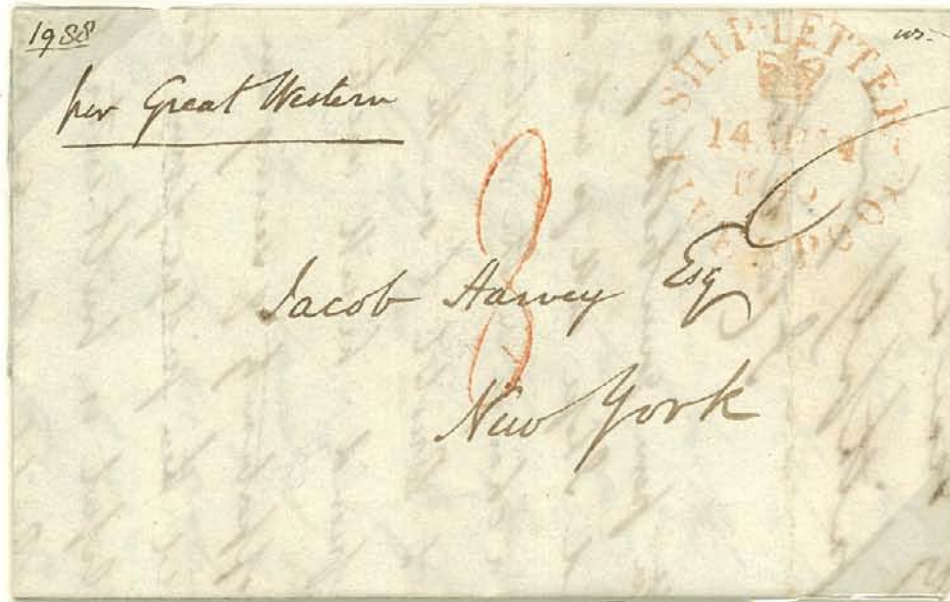 1988
ws.
per Great Western
SHIP-LETTER
14
LIVERPOOL
8
Jacob Harvey Esq
New York